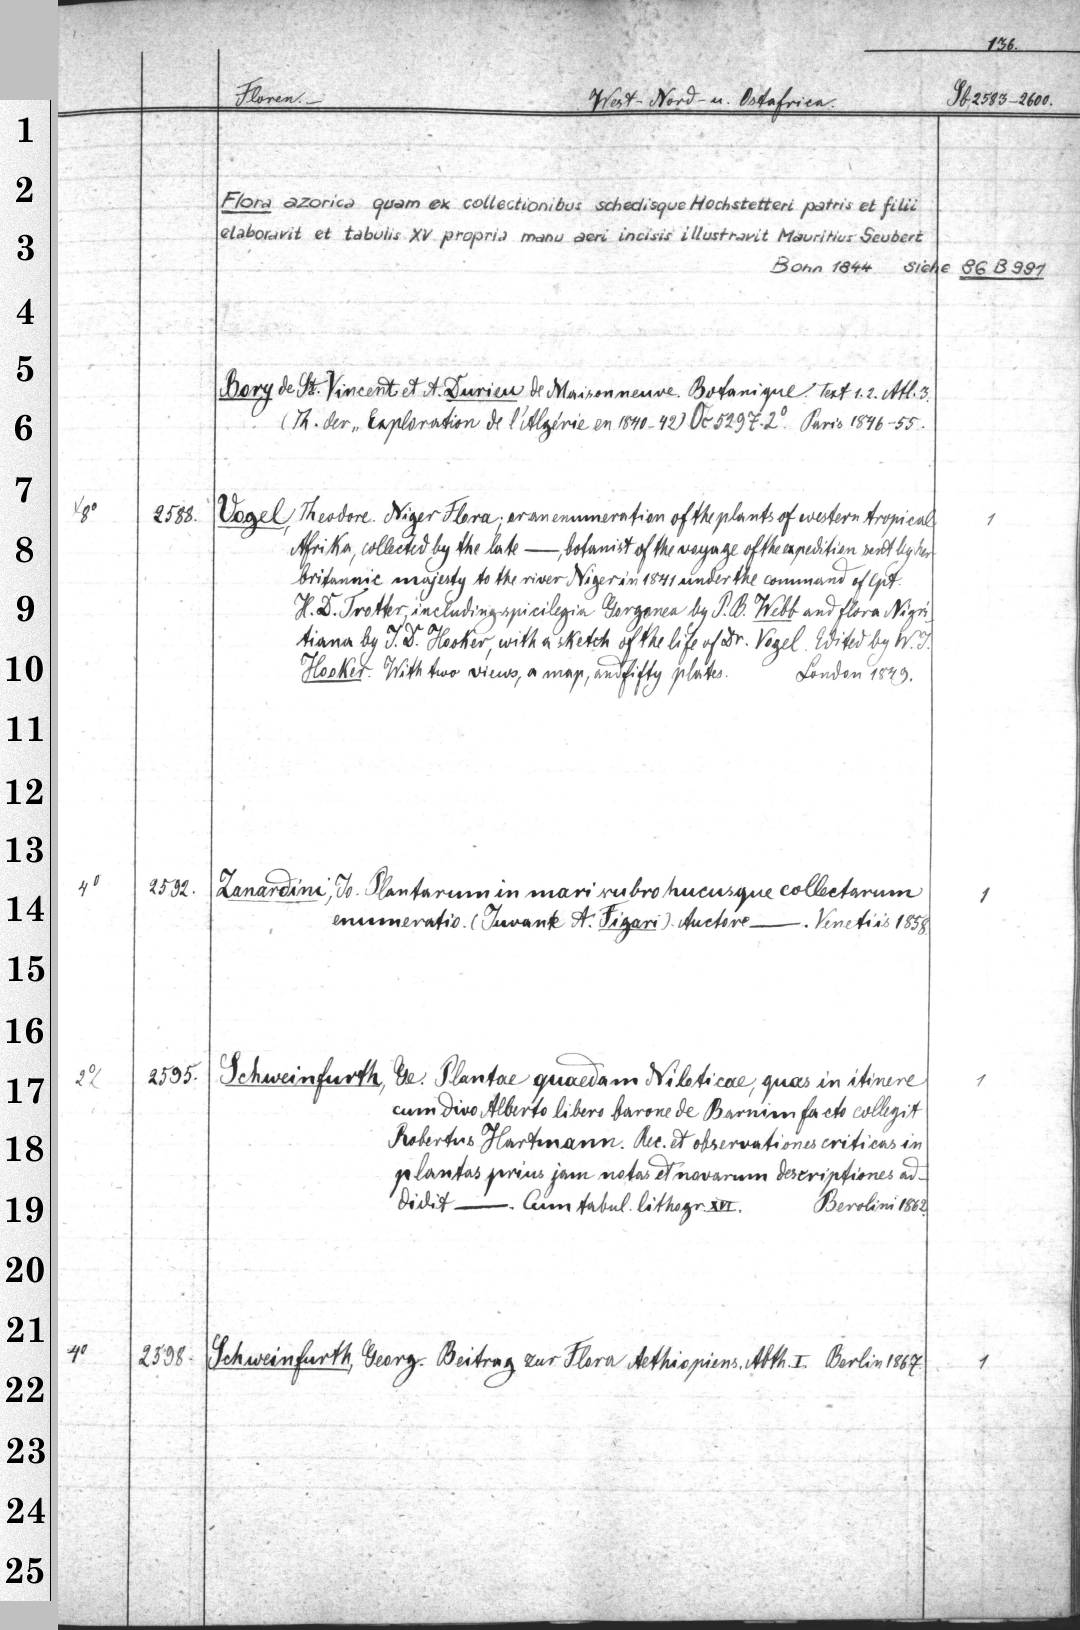 136.
Floren. West- Nord- u. Ostafrica. Sb 2583-2600.
1
2
Flora azorica quam ex collectionibus schedisque Hochstetteri patris et filii
3
elaboravit et tabulis XV propria manu aeri incisis illustravit Mauritius Seubert
Bonn 1844 siehe 86 B 991
4
5
Bory de St. Vincent et A. Durieu de Maisonneuve. Botanique. Text 1.2. Atl. 3.
6
(Th. der „Exploration de l'Algérie en 1840-42) Oc 5297.2° Paris 1846-55.
7
8° 2588. Vogel, Theodore. Niger Flora; or an enumeration of the plants of western tropical 1
8
Afrika, collected by the late —, botanist of the voyage of the expedition sent by her
britannic majesty to the river Niger in 1841 under the command of Cpt.
9
H. D. Trotter, including spicilegia Gorgonea by P. B. Webb and flora Nigri-
tiana by J. D. Hooker, with a sketch of the life of Dr. Vogel. Edited by W. J.
10
Hooker. With two views, a map, and fifty plates. London 1849.
11
12
13
4° 2592. Zanardini, Jo. Plantarum in mari rubro hucusque collectarum 1
14
enumeratio. (Juvante A. Figari). Auctore —. Venetiis 1858
15
16
2° 2595. Schweinfurth, Ge. Plantae quaedam Niloticae, quas in itinere 1
17
cum divo Alberto libero barone de Barnim facto collegit
18
Robertus Hartmann. Rec. et observationes criticas in
plantas prius jam notas et novarum descriptiones ad-
19
didit —. Cum tabul. lithogr. XVI. Berolini 1862
20
21
4° 2598. Schweinfurth, Georg. Beitrag zur Flora Aethiopiens. Abth. I. Berlin 1867 1
22
23
24
25